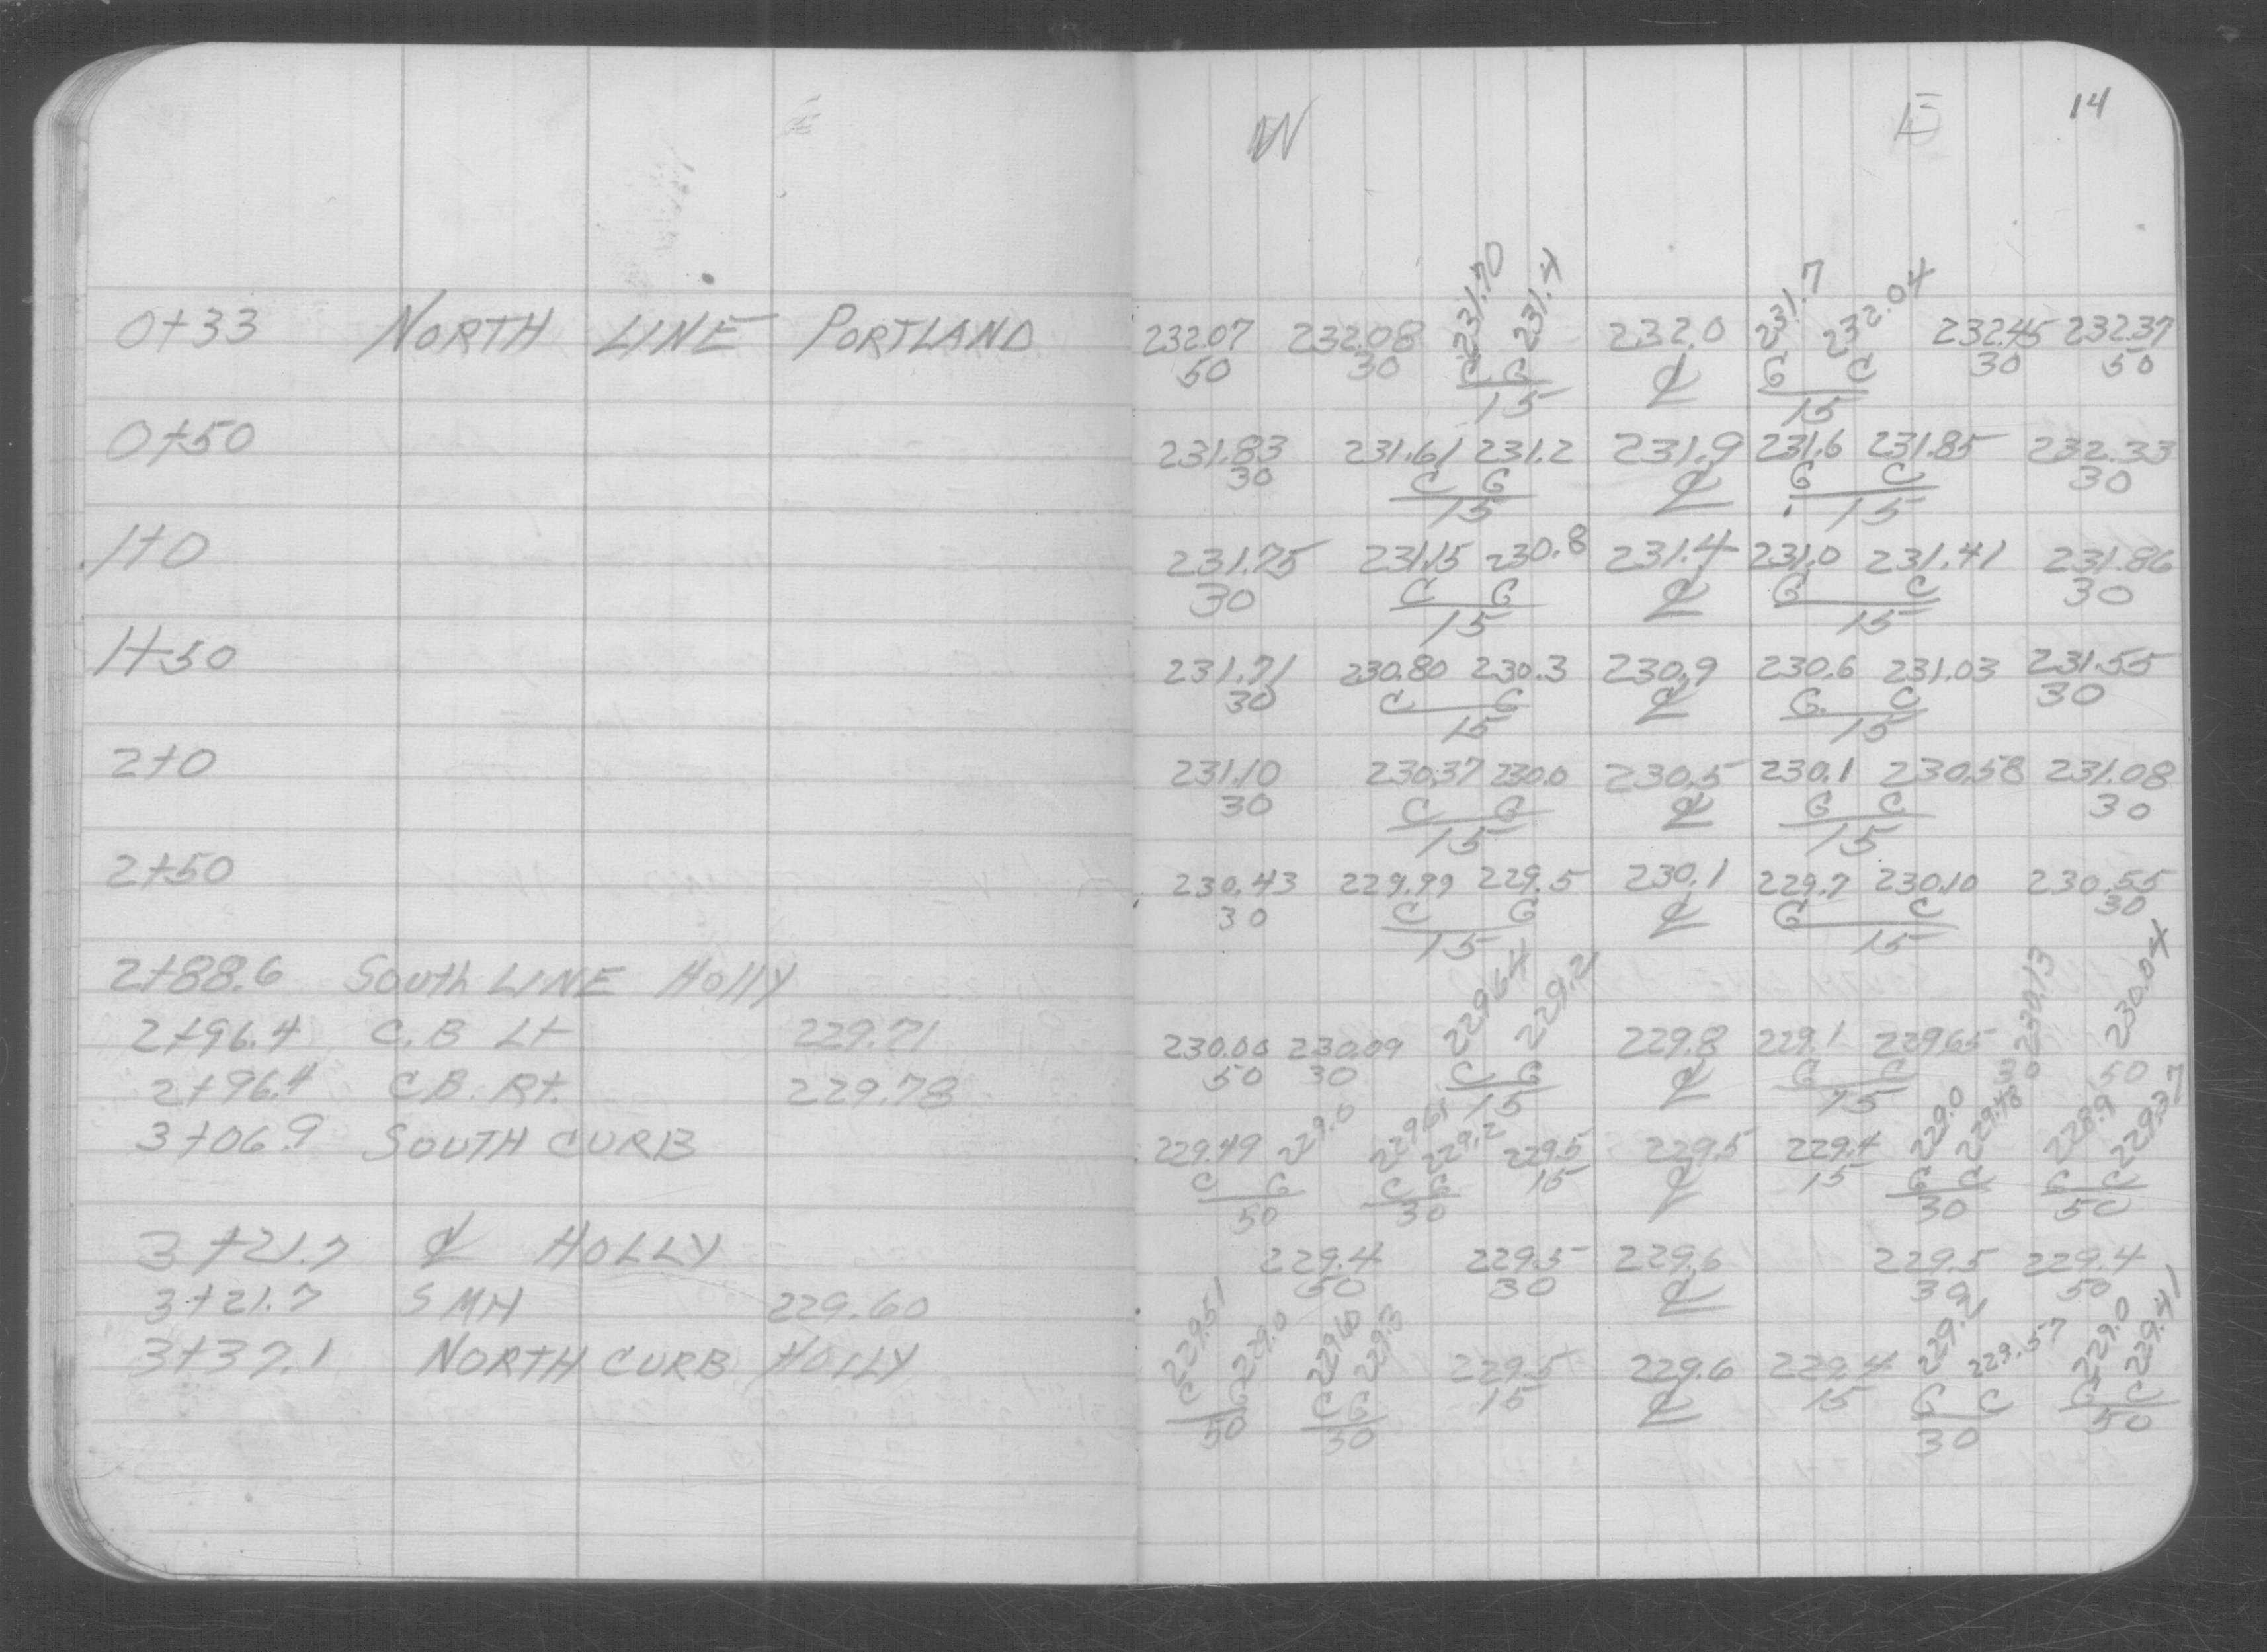 W E 14
231.70 231.4 231.7 232.04
0+33 NORTH LINE PORTLAND 232.07 232.08 232.0 232.45 232.37
50 30 C G ℄ G C 30 50
15 15
0+50 231.83 231.61 231.2 231.9 231.6 231.85 232.33
30 C G ℄ G C 30
15 15
1+0 231.75 231.15 230.8 231.4 231.0 231.41 231.86
30 C G ℄ G C 30
15 15
1+50 231.71 230.80 230.3 230.9 230.6 231.03 231.55
30 C G ℄ G C 30
15 15
2+0 231.10 230.37 230.0 230.5 230.1 230.58 231.08
30 C G ℄ G C 30
15 15
2+50 230.43 229.99 229.5 230.1 229.7 230.10 230.55
30 C G ℄ G C 30
15 15
2+88.6 South LINE Holly
229.64 229.21 230.13 230.04
2+96.4 C.B Lt 229.71 230.00 230.09 229.8 229.1 229.65
50 30 C G ℄ G C 30 50
2+96.4 C.B. Rt. 229.78 15 15
3+06.9 SOUTH CURB 229.49 229.0 229.61 229.2 229.5 229.5 229.4 229.0 229.48 228.9 229.37
C G C G 15 ℄ 15 G C G C
50 30 30 50
3+21.7 ℄ HOLLY 229.4 229.5 229.6 229.5 229.4
50 30 ℄ 30 50
3+21.7 SMH 229.60
3+37.1 NORTH CURB HOLLY 229.51 229.0 229.60 229.3 229.5 229.6 229.4 229.21 229.57 229.0 229.41
C G C G 15 ℄ 15 G C G C
50 30 30 50